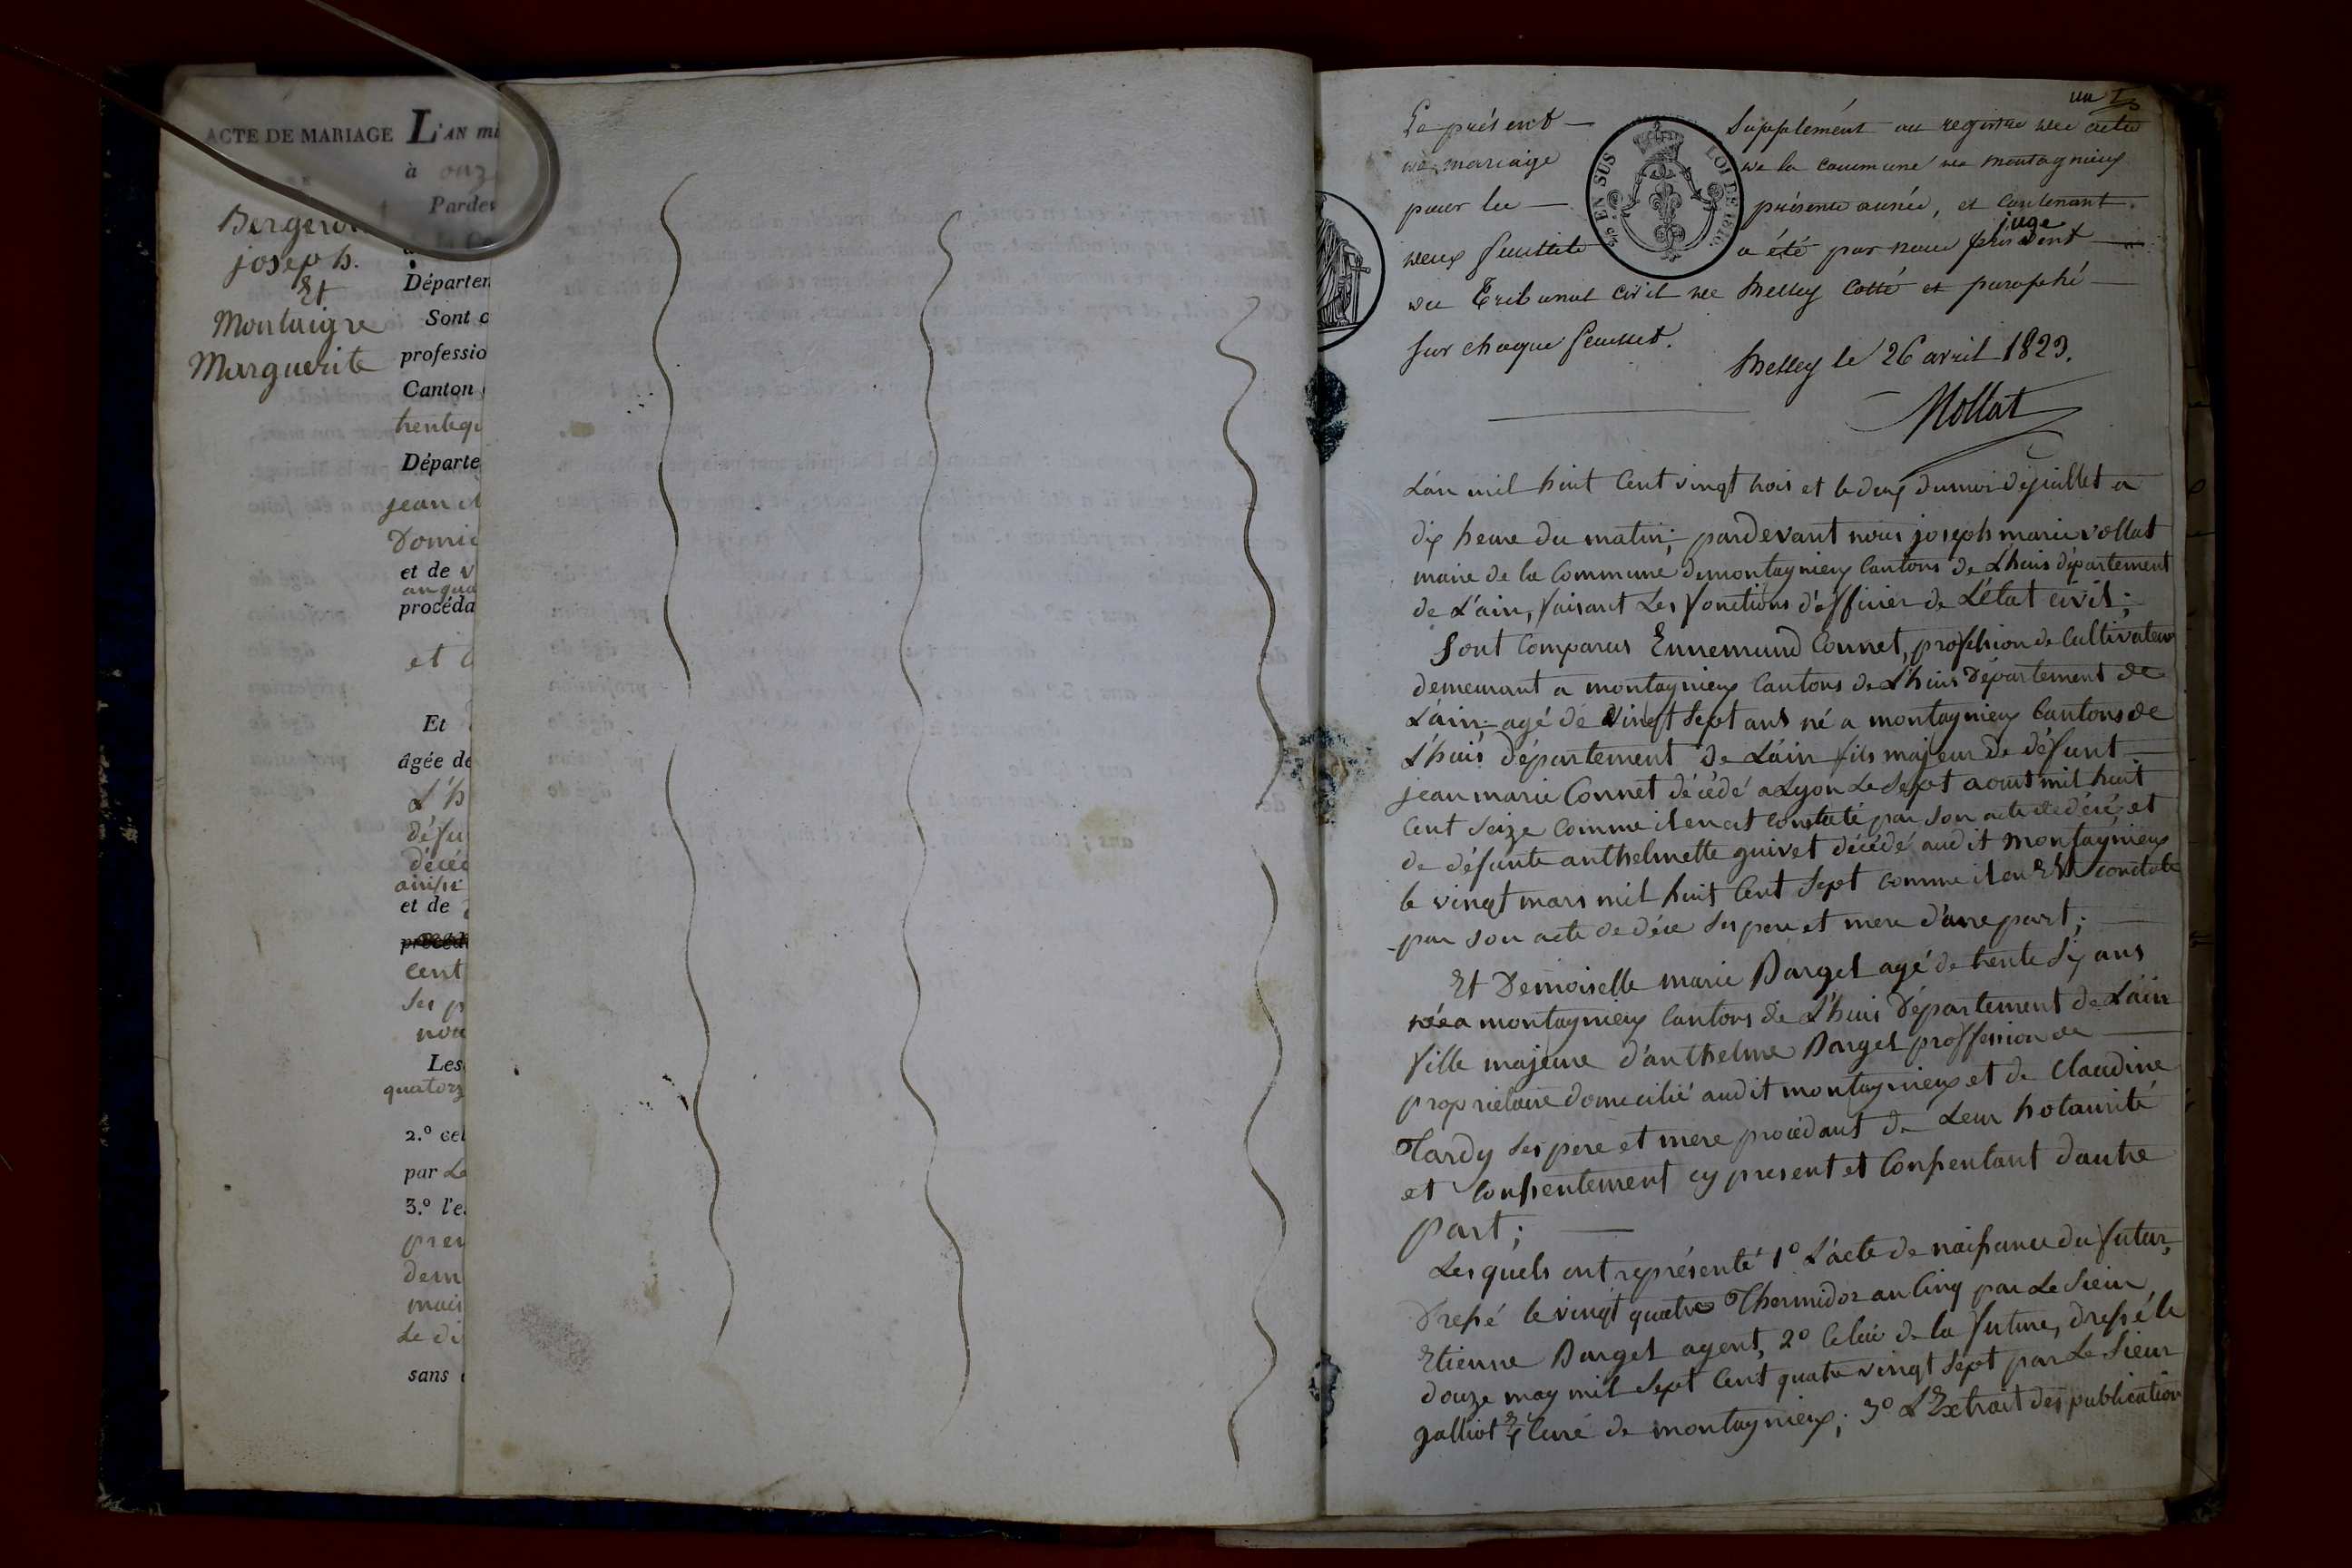 ACTE DE MARIAGE
Bergero
joseph.
Et
Montaigre
Marguerite
L'AN mi
à onz
Parde
Départem
Sont c
professio
Canton
trentequ
Départe
jean
Domic
et de v
procéda
et
Et
âgée de
L'h
défu
décéd
ainsi
et de
cent
ses p
nou
Les
quatorz
2.° cel
par Le
3.° l'e
prem
dem
mais
Le di
sans
un
Le présent Supplément au registre des actes
de mariage de la commune de montagnieux
pour la présente année, et contenant
deux feuillets a été par nous président juge
du Tribunal civil de Belley Cotté et paraphé
sur chaque feuillet.
Belley le 26 avril 1823.
Mollat
3/5 EN SUS LOI DE 1816.
L'an mil huit Cent vingt trois et le deux du moi de juillet a
dix heure du matin; pardevant nous joseph marie vollat
maire de la Commune de montagnieux Cantons de L'huis département
de L'ain, faisant Les fonctions d'officier de L'état civil;
Sont Comparus Ennemund Connet, profession de Cultivateur
demeurant a montagnieux Cantons de L'huis Département de
L'ain agé de vingt sept ans né a montagnieux Cantons de
L'huis département de L'ain fils majeur de défunt
jean marie Connet décédé a Lyon Le sept aoust mil huit
Cent seize Comme il en est constaté par son acte de décé, et
de défunte anthelmette guivet décédé audit montagnieux
le vingt mars mil huit Cent sept comme il en Est constaté
par son acte de décé ses pere et mere d'une part;
Et Demoiselle marie Barget agé de trente six ans
née a montagnieux Cantons de L'huis Département de L'ain
fille majeure d'anthelme Barget proffession de
propriétaire domicilié audit montagnieux et de Claudine
Tardy ses pere et mere procédant de Leur hotaurité
et Consentement cy present et Consentant d'autre
part;
Lesquels ont représenté 1° L'acte de naissance du futur,
Dressé le vingt quatre Thermidor an Cinq par Le sieur
Etienne Barget agent, 2° Celui de la future, dressé le
douze may mil sept Cent quatre vingt sept par Le sieur
galliot Curé de montagnieux; 3° L'Extrait des publication